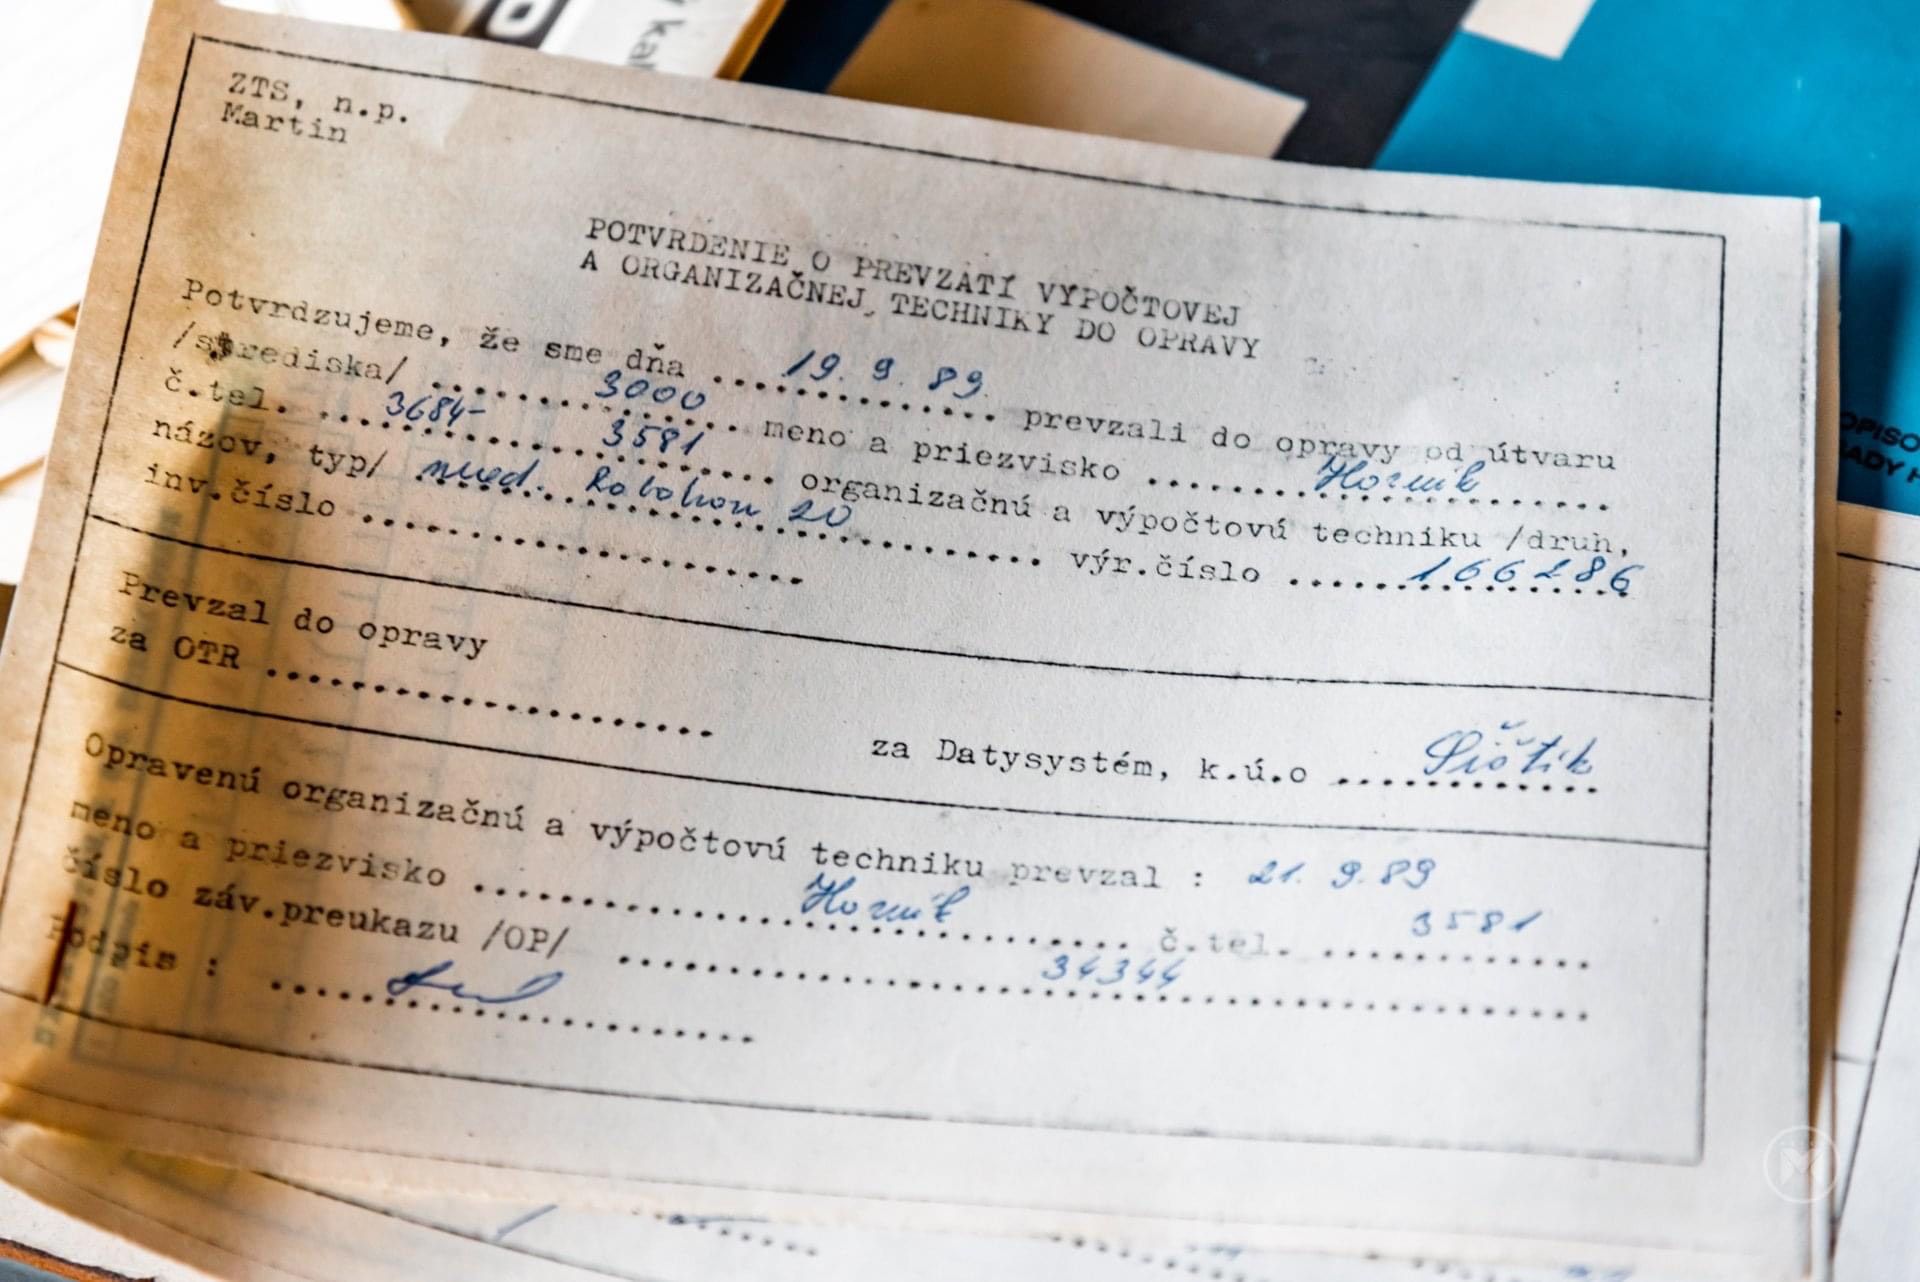 ZTS, n.p.
Martin
POTVRDENIE O PREVZATÍ VÝPOČTOVEJ
A ORGANIZAČNEJ TECHNIKY DO OPRAVY
Potvrdzujeme, že sme dňa 19. 9. 89 prevzali do opravy od útvaru
/strediska/ 3000 meno a priezvisko Horník
č.tel. 3684- 3581 organizačnú a výpočtovú techniku /druh,
názov, typ/ Robotron 20 výr.číslo 166286
inv.číslo
Prevzal do opravy
za OTR za Datysystém, k.ú.o
Opravenú organizačnú a výpočtovú techniku prevzal : 21. 9. 89
meno a priezvisko Horník č.tel. 3581
číslo záv.preukazu /OP/ 34344
Podpis :